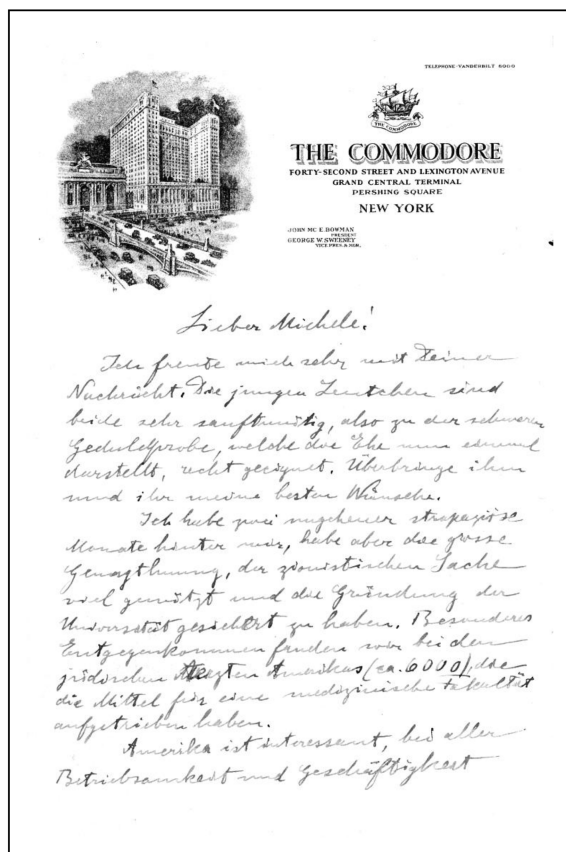 TELEPHONE-VANDERBILT 6000
THE COMMODORE
THE COMMODORE
FORTY-SECOND STREET AND LEXINGTON AVENUE
GRAND CENTRAL TERMINAL
PERSHING SQUARE
NEW YORK
JOHN MC E. BOWMAN
PRESIDENT
GEORGE W. SWEENEY
VICE PRES. & MGR.
Lieber Michele!
Ich freute mich sehr mit Deiner
Nachricht. Die jungen Leutchen sind
beide sehr sanftmütig, also zu der schweren
Geduldprobe, welche die Ehe nun einmal
darstellt, recht geeignet. Überbringe ihm
und ihr meine besten Wünsche.
Ich habe zwei ungeheuer strapaziöse
Monate hinter mir, habe aber die grosse
Genugthuung, der zionistischen Sache
viel genützt und die Gründung der
Universität gesichert zu haben. Besonderes
Entgegenkommen fanden wir bei den
jüdischen Aerzten Amerikas (ca. 6000), die
die Mittel für eine medizinische Fakultät
aufgetrieben haben.
Amerika ist interessant, bei aller
Betriebsamkeit und Geschäftigkeit